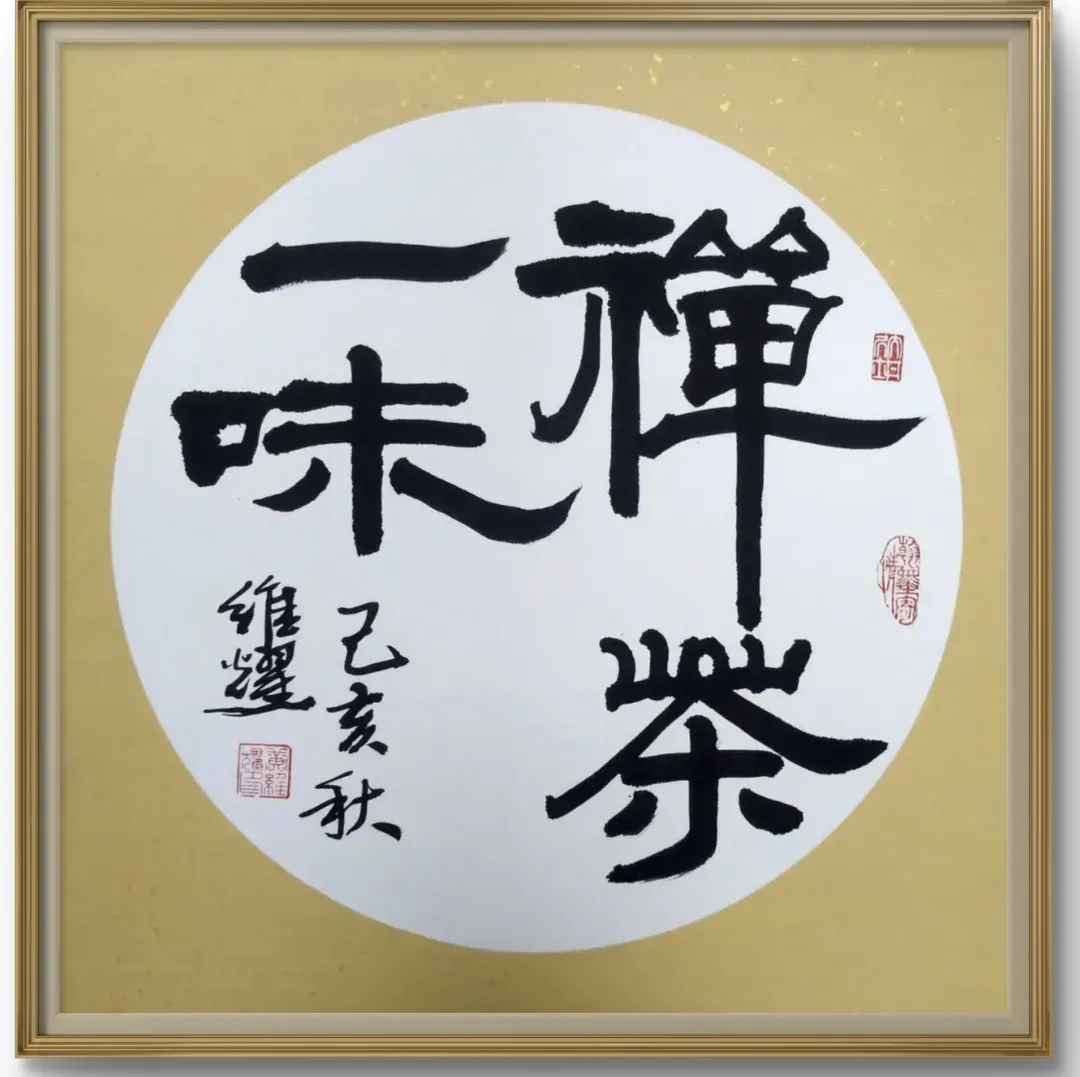 禪茶
一味
己亥秋
維耀